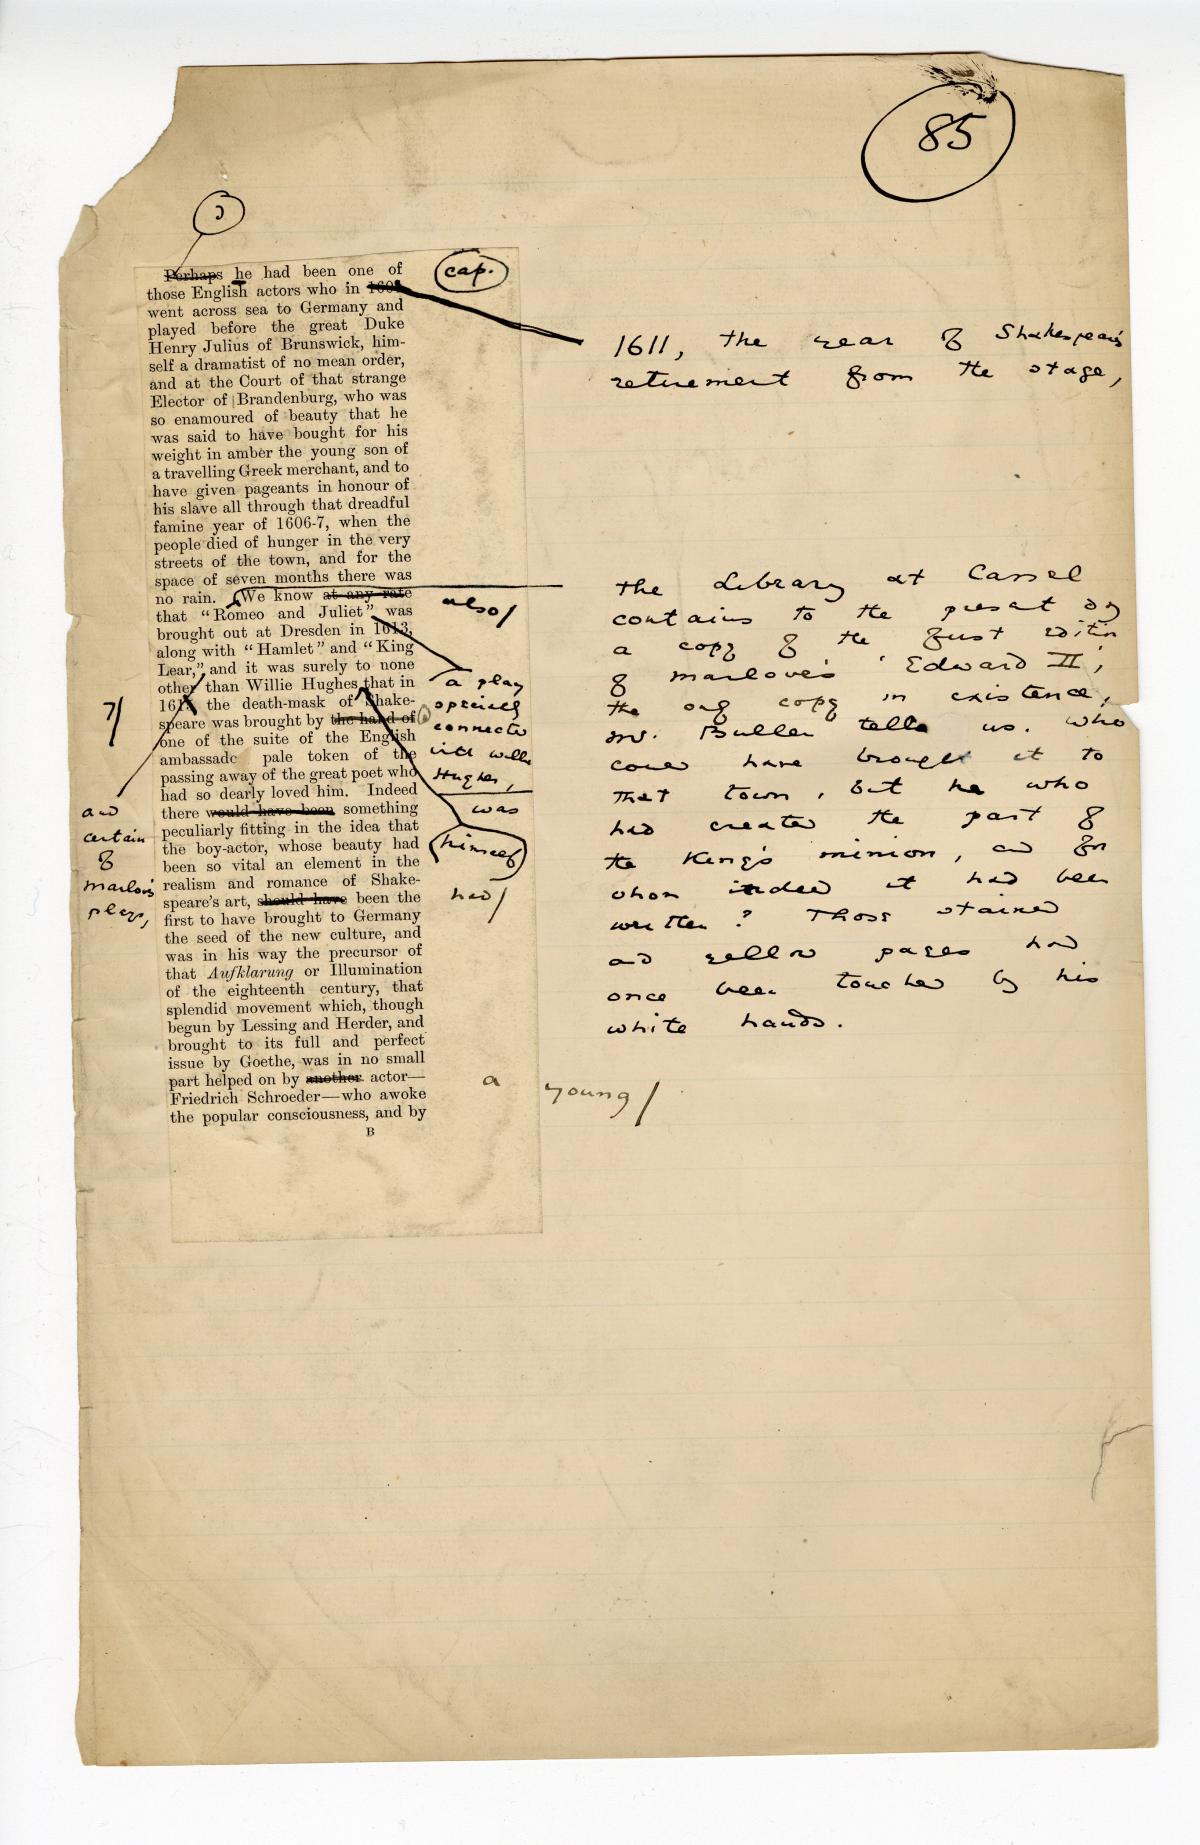 85
cap.
Perhaps he had been one of
those English actors who in
went across sea to Germany and
played before the great Duke
Henry Julius of Brunswick, him-
self a dramatist of no mean order,
and at the Court of that strange
Elector of Brandenburg, who was
so enamoured of beauty that he
was said to have bought for his
weight in amber the young son of
a travelling Greek merchant, and to
have given pageants in honour of
his slave all through that dreadful
famine year of 1606-7, when the
people died of hunger in the very
streets of the town, and for the
space of seven months there was
no rain. We know at any rate
that “Romeo and Juliet” was
brought out at Dresden in 1613,
along with “Hamlet” and “King
Lear,” and it was surely to none
other than Willie Hughes that in
the death-mask of Shake-
speare was brought by the hand of
one of the suite of the English
ambassado pale token of the
passing away of the great poet who
had so dearly loved him. Indeed
there would have been something
peculiarly fitting in the idea that
the boy-actor, whose beauty had
been so vital an element in the
realism and romance of Shake-
speare's art, should have been the
first to have brought to Germany
the seed of the new culture, and
was in his way the precursor of
that Aufklarung or Illumination
of the eighteenth century, that
splendid movement which, though
begun by Lessing and Herder, and
brought to its full and perfect
issue by Goethe, was in no small
part helped on by another actor—
Friedrich Schroeder—who awoke
the popular consciousness, and by
B
1611, the year of Shakespeare's
retirement from the stage,
also/
a play
specially
connected
with Willie
Hughes,
was
himself
had/
7/
and
certain
of
Marlowe's
plays,
The Library at Cassel
contains to the present day
a copy of the first edition
of Marlowe's 'Edward II',
the only copy in existence,
Mr. Bullen tells us. Who
could have brought it to
that town, but he who
had created the part of
the King's minion, and for
whom indeed it had been
written? Those stained
and yellow pages had
once been touched by his
white hands.
a young/